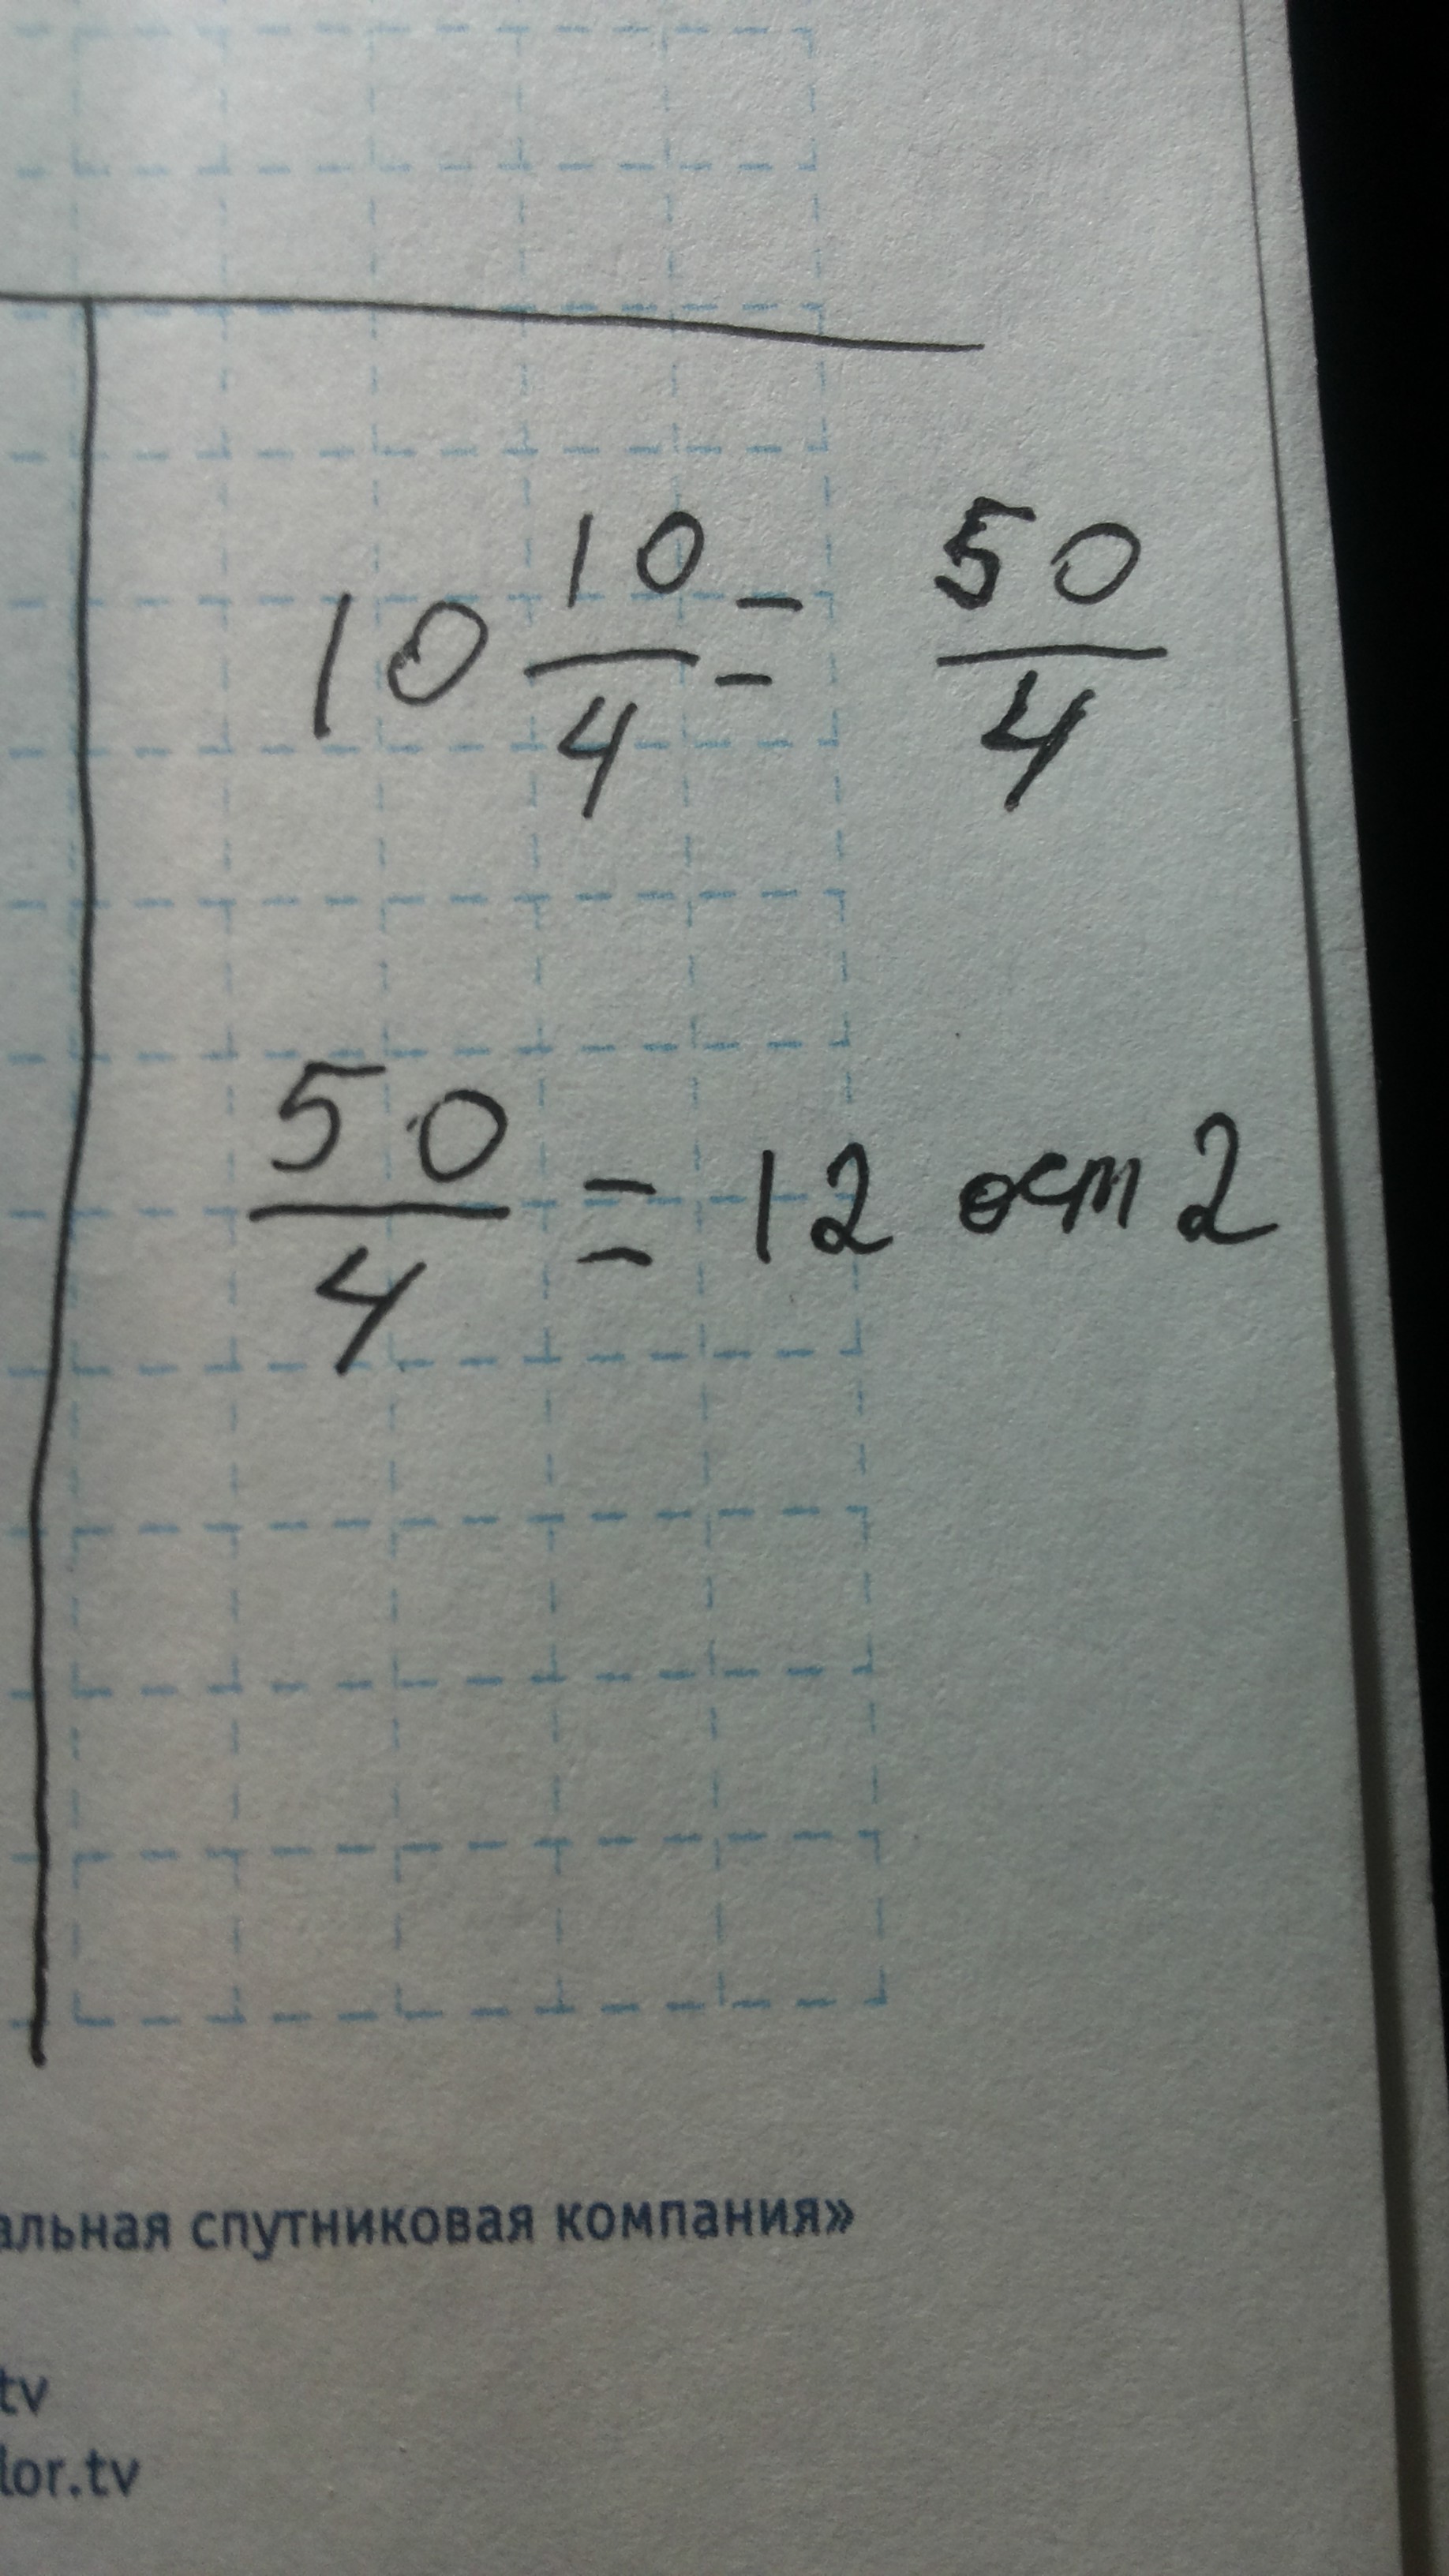 10 10/4 = 50/4
50/4 = 12 ост 2
альная спутниковая компания»
tv
lor.tv